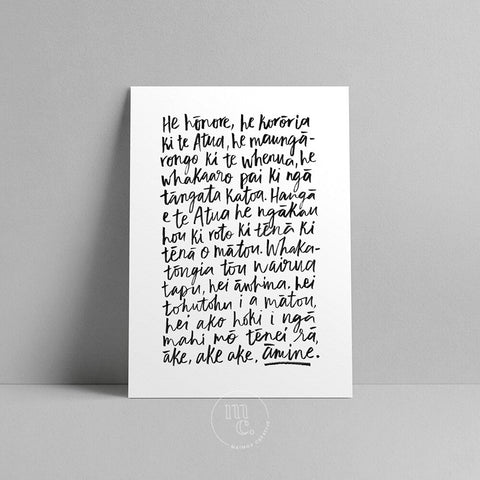 He hōnore, he korōria
ki te Atua, he maungā-
rongo ki te whenua, he
whakaaro pai ki ngā
tāngata katoa. Hangā
e te Atua he ngākau
hou ki roto ki tēnā ki
tēnā o mātou. Whaka-
tōngia tou wairua
tapu, hei āwhina. hei
tohutohu i a mātou,
hei ako hoki i ngā
mahi mō tēnei rā,
āke, ake ake, āmine.
mc
Co